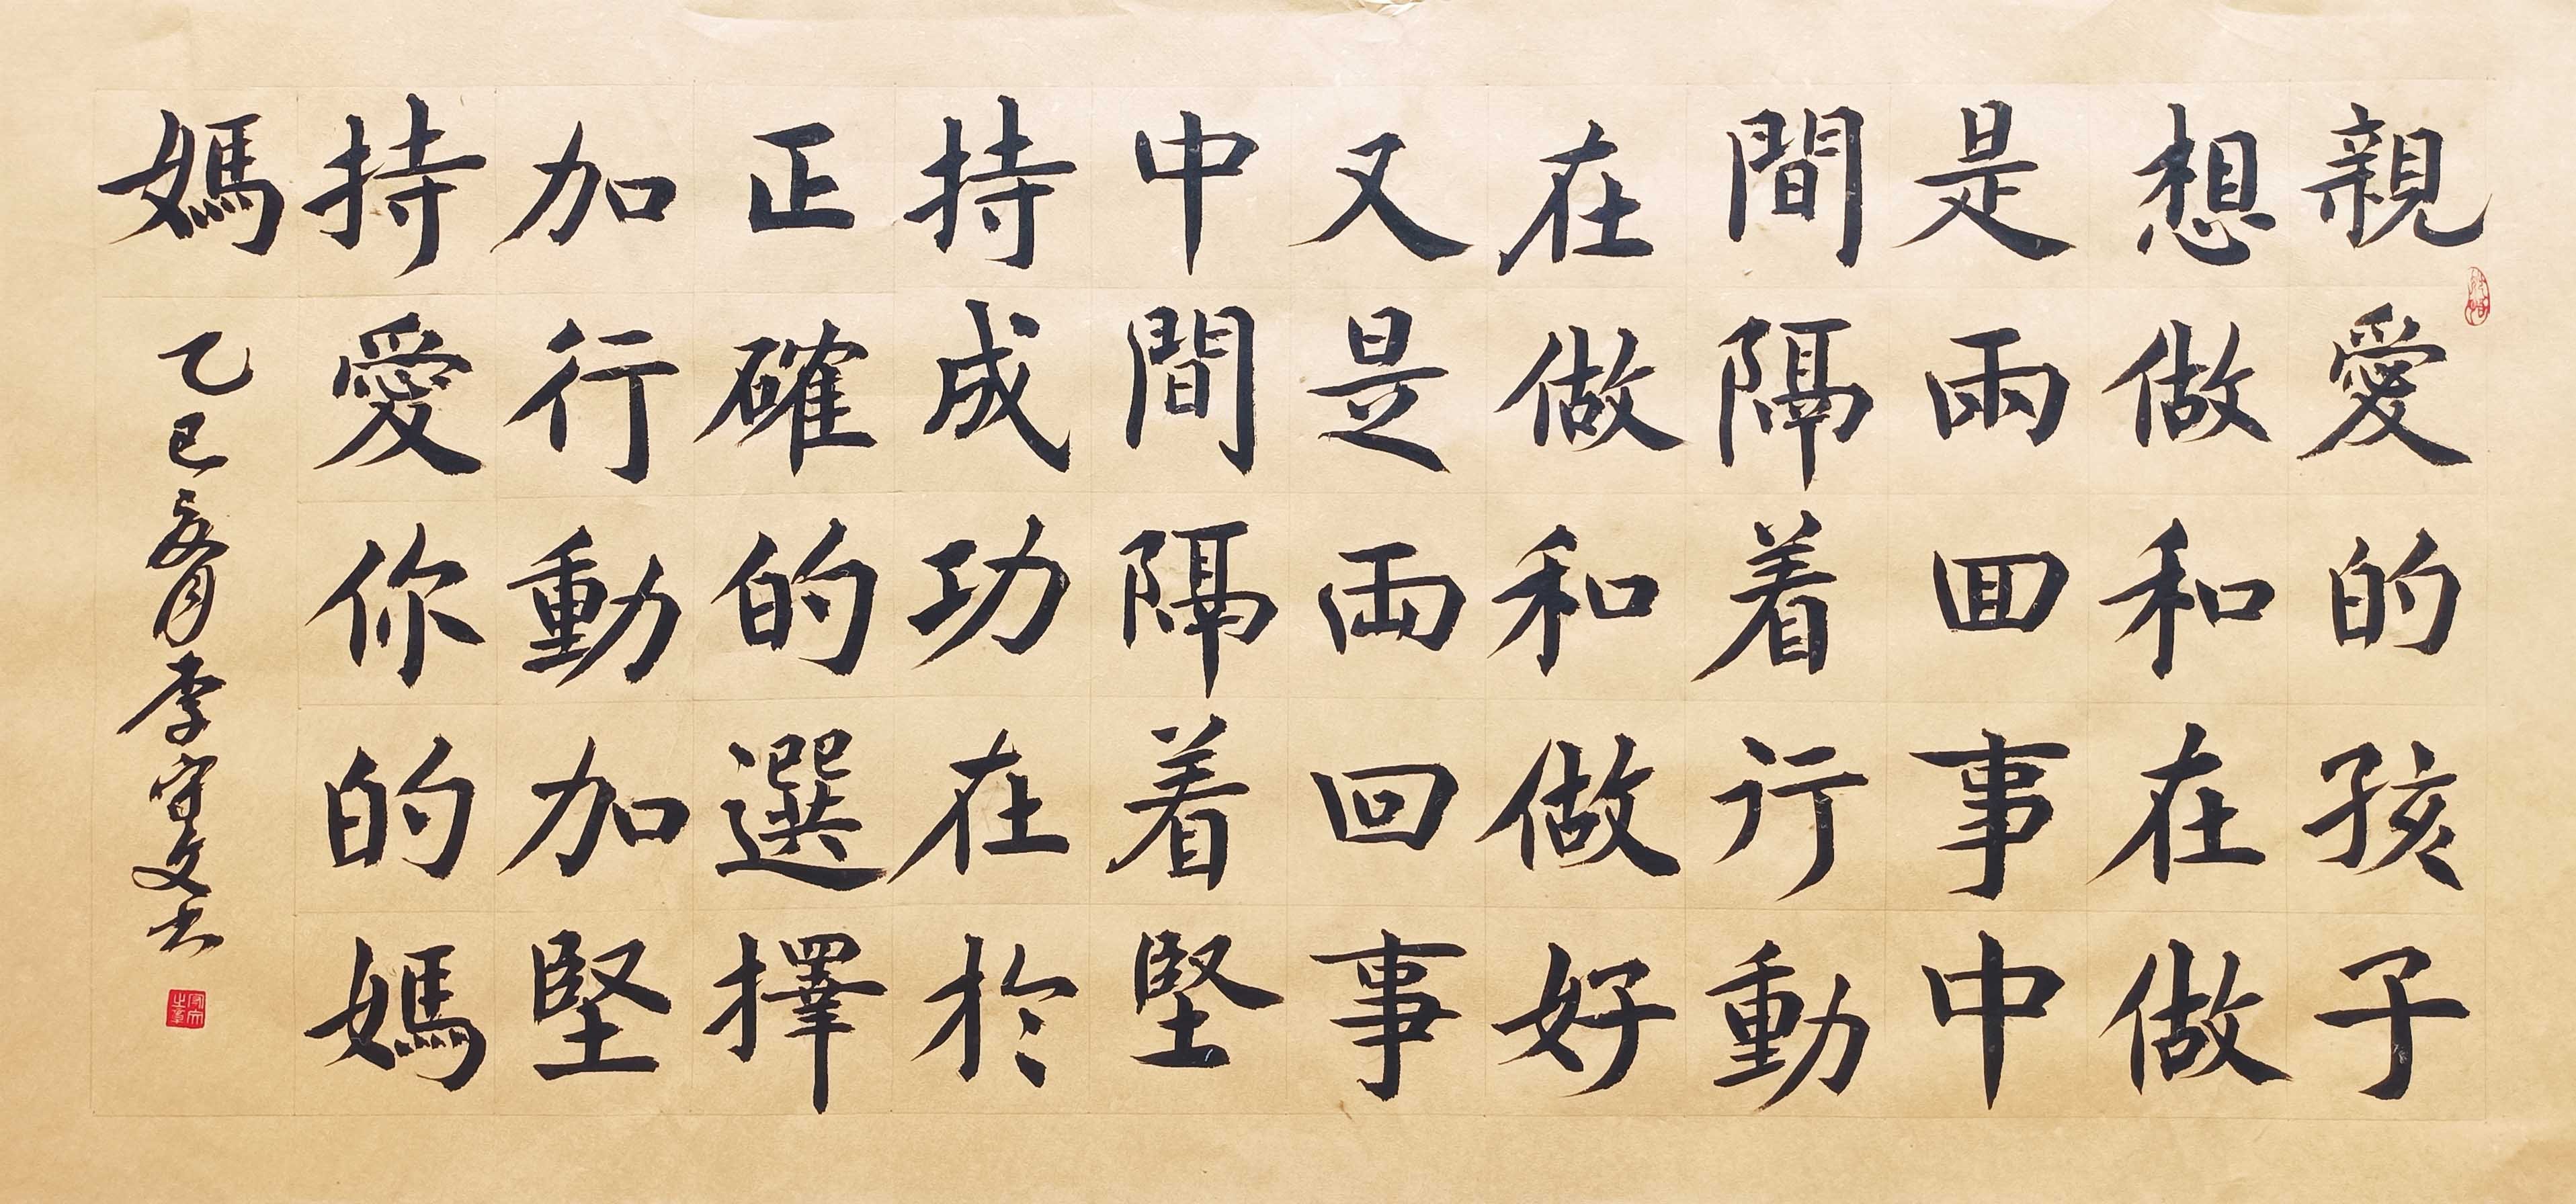 親愛的孩子
想做和在做
是兩囬事中
間隔着行動
在做和做好
又是兩回事
中間隔着堅
持成功在於
正確的選擇
加行動加堅
持愛你的媽
媽
乙巳月李守文书